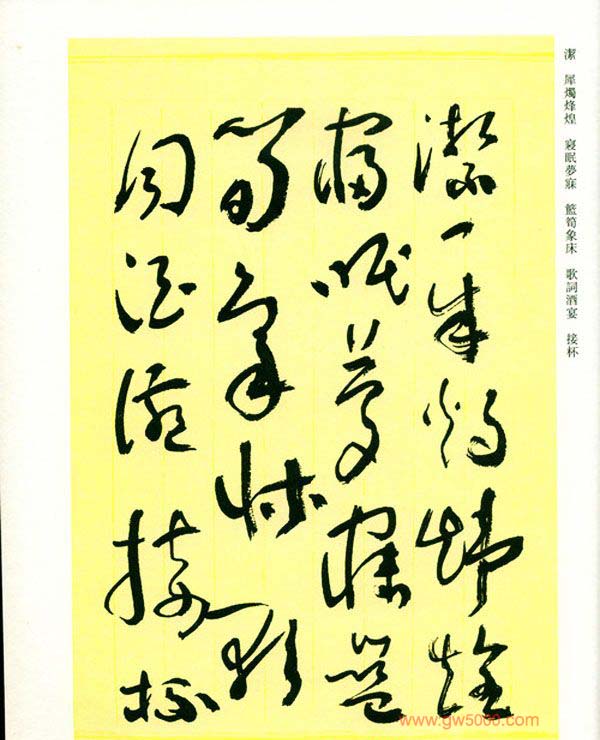 潔 犀燭烽煌 寢眠夢寐 籃筍象床 歌詞酒宴 接杯
潔犀燭煒煌
寢眠夢寐籃
筍象床歌
詞酒宴接杯
www.gw5000.com